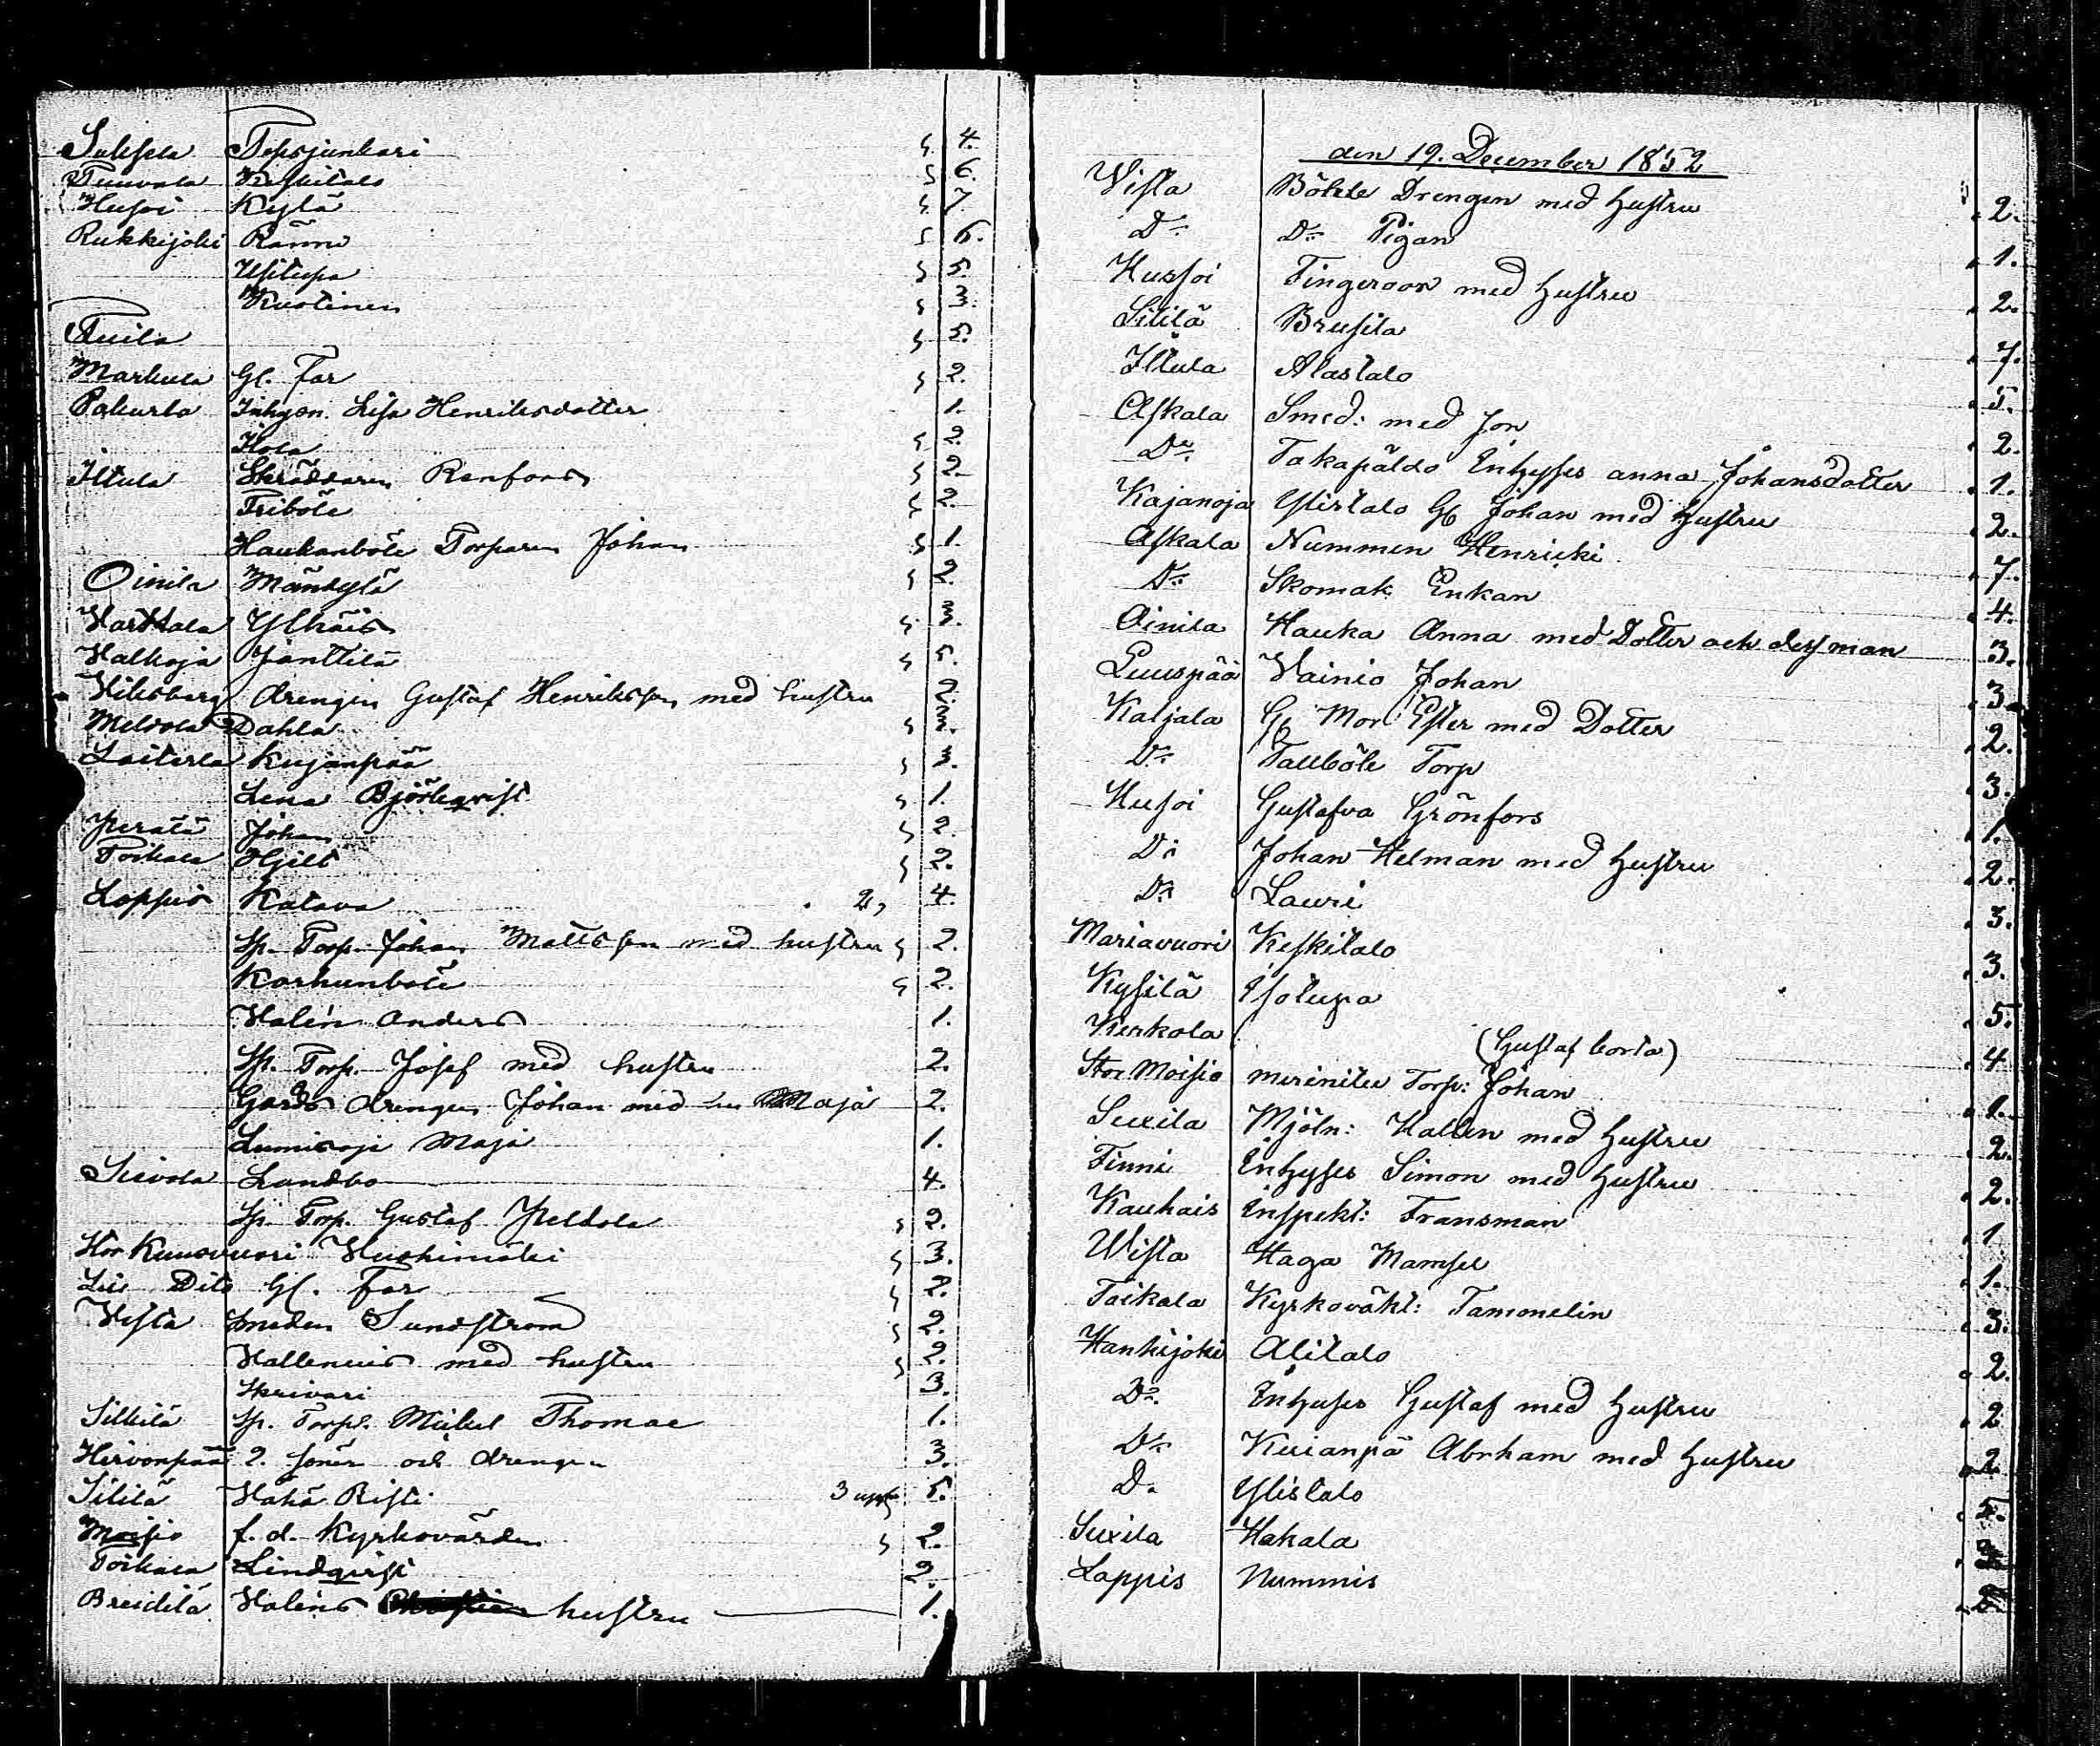 Suksela Tepsjunkari 4.
Tuuvala Keskitalo 6.
Husoi Kylä 7.
Rukkijoki Ränni 6.
Ylitupa 5.
Kustinen 3.
Tuila 5.
Markula Gl. Far 2.
Pakurla Inhysn. Lisa Henriksdotter 1.
Hola 2.
Iltula Skräddaren Renfors 2.
Friböle 2.
Haukanböle Torparen Johan 1.
Oinila Mäntylä 2.
Harkkala Ylhäis 3.
Halkoja Jänttilä 5.
Hiisberg drengen Gustaf Henriksson med hustru 2.
Meldola Dahla 3.
Laiterla Kujanpää 3.
Lena Björkqvist 1.
Perälä Johan 2.
Toikala Hjelt 2.
Loppis Katava 2, 4.
Sp. Torp. Johan Mattsson med hustru 2.
Karhunböle 2.
Halén Anders 1.
Sp. Torp. Josef med hustru 2.
Gards drengen Johan med Maja 2.
Lumisoja Maja 1.
Sievola Lundbo 4.
Sp. Torp. Gustaf Peldola 2.
Stor Kuusvuori Huhkimäki 3.
Lill Dito Gl. Far 2.
Vista Smeden Sundström 2.
Hallenius med hustru 2.
Skrivari 3.
Silkilä Sp. Torp. Mickel Thomae 1.
Hirvonpää 2. söner och drengen 3.
Sililä Hähä Risti 3 5.
Moisio f. d. Kyrkovärden 2.
Toikala Lindqvist 2.
Breidilä Haléns hustru 1.
den 19. December 1852
Wista Böhle Drengen med hustru 2.
Do Do Pigan 1.
Hussoi Fingeroos med hustru 2.
Sililä Brusila 7.
Iltula Alastalo 5.
Askala Smed: med son 2.
Do Takapäldo Inhyses anna Johansdotter 1.
Kajanoja Ylistalo Gl Johan med hustru 2.
Askala Nummen Henricki 7.
Do Skomak. Enkan 4.
Oinila Hauka Anna med Dotter och dess man 3.
Luuspää Wainio Johan 3.
Kaljala Gl Mor Ester med Dotter 2.
Do Tallböle Torp 3.
Husoi Gustafva Grönfors 1.
Do Johan Helman med hustru 2.
Do Lauri 3.
Mariavuori Keskitalo 3.
Kysilä Isotupa 5.
Kerkola 4
(Gustaf borta)
Stor Moisio merinitu Torp: Johan 1.
Suxila Mjöln: Hallen med hustru 2.
Finni Inhyses Simon med hustru 2.
Kauhais Inspekt: Fransman 1
Wista Haga Mamsel 1.
Toikala Kyrkoväkt: Tammelin 3.
Hankijoki Alitalo 2.
Do Inhuses Gustaf med hustru 2
Do Kuianpä Abrham med hustru 2
Do Ylistalo 5.
Suxila Hakala
Loppis Nummis 2.